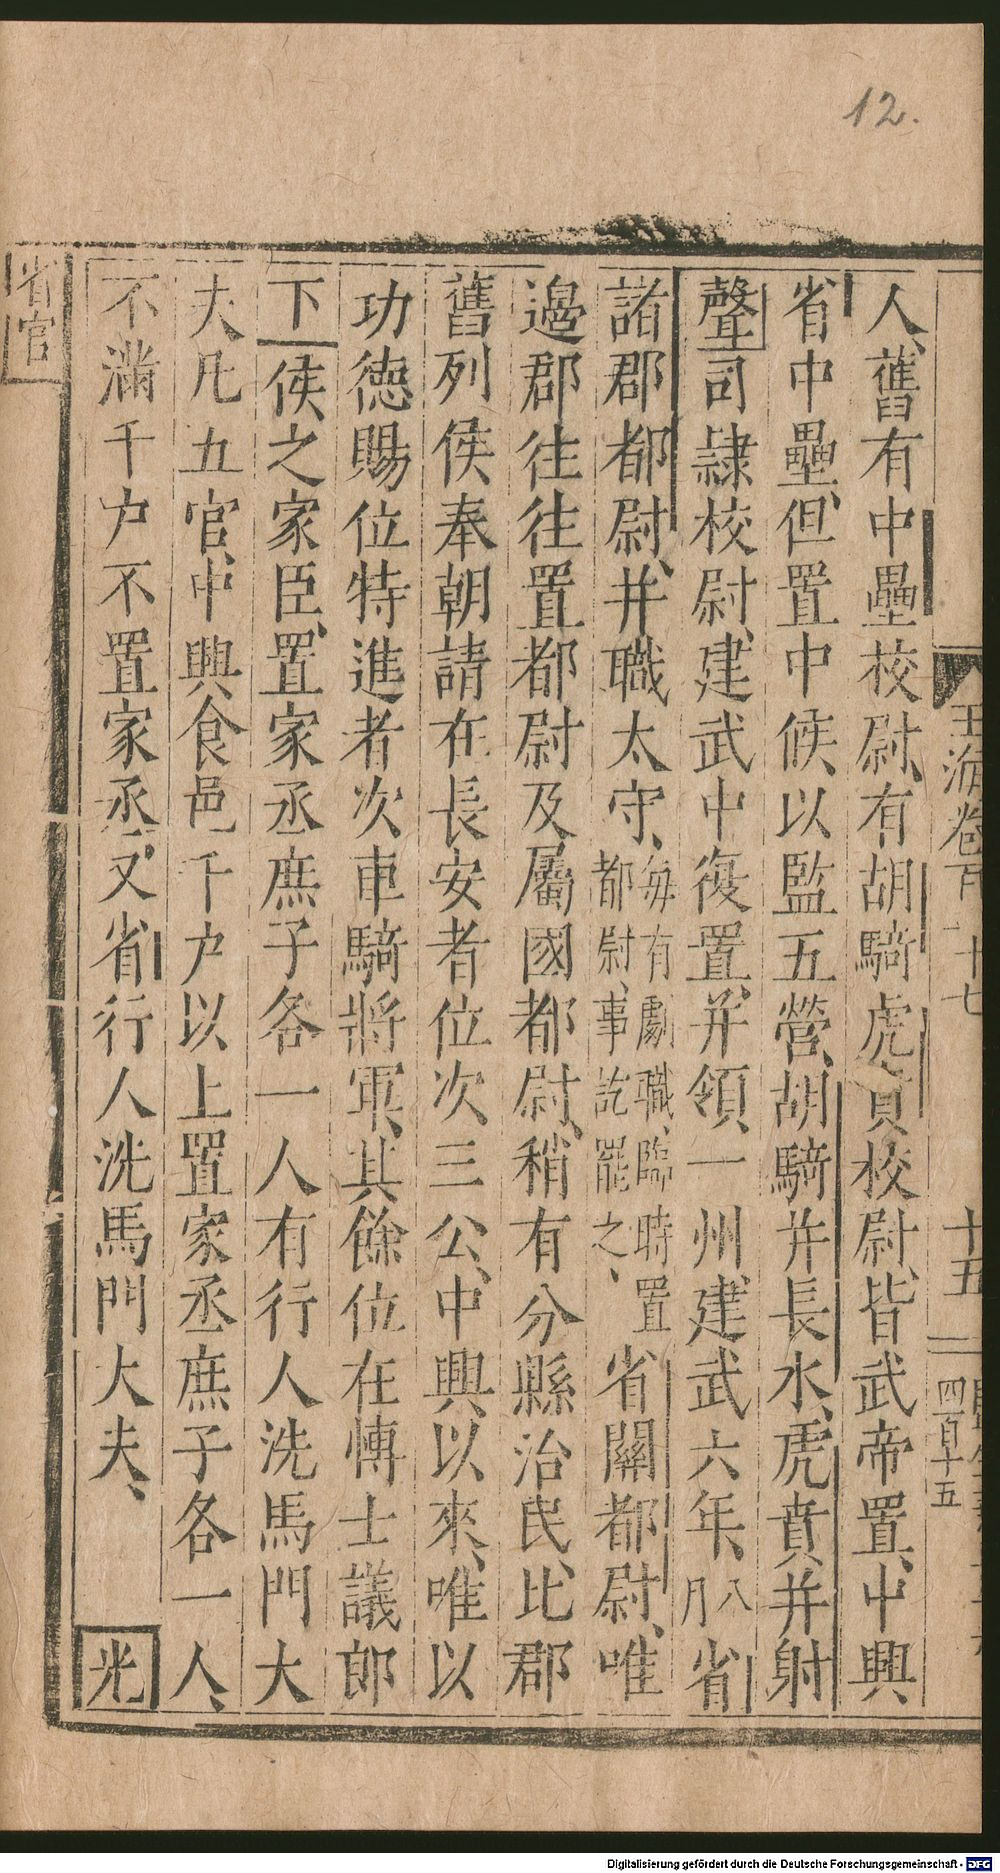 12.
玉海卷百二十七
十五
四百十五
人舊有中壘校尉有胡騎虎賁校尉皆武帝置中興
省中壘但置中候以監五營胡騎并長水虎賁并射
聲司隷校尉建武中復置并領一州建武六年八月省
諸郡都尉并職太守每有劇職臨時置都尉事訖罷之省關都尉唯
邉郡往往置都尉及屬國都尉稍有分縣治民比郡
舊列侯奉朝請在長安者位次三公中興以來唯以
功德賜位特進者次車騎將軍其餘位在博士議郎
下侯之家臣置家丞庶子各一人有行人洗馬門大
夫凡五官中興食邑千户以上置家丞庶子各一人
不滿千户不置家丞又省行人洗馬門大夫
光
省官
Digitalisierung gefördert durch die Deutsche Forschungsgemeinschaft - DFG